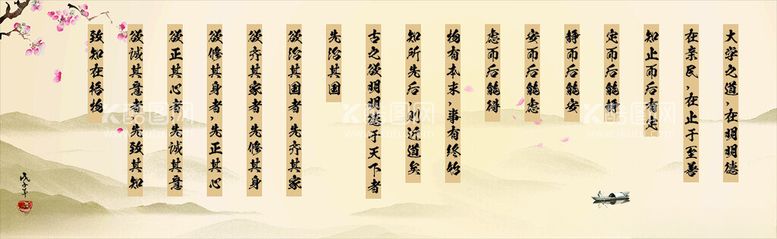 大学之道，在明明德
在亲民，在止于至善
知止而后有定
定而后能静
静而后能安
安而后能虑
虑而后能得
物有本末，事有终始
知所先后，则近道矣
古之欲明明德于天下者
先治其国
欲治其国者，先齐其家
欲齐其家者，先修其身
欲修其身者，先正其心
欲正其心者，先诚其意
欲诚其意者，先致其知
致知在格物
戊子年